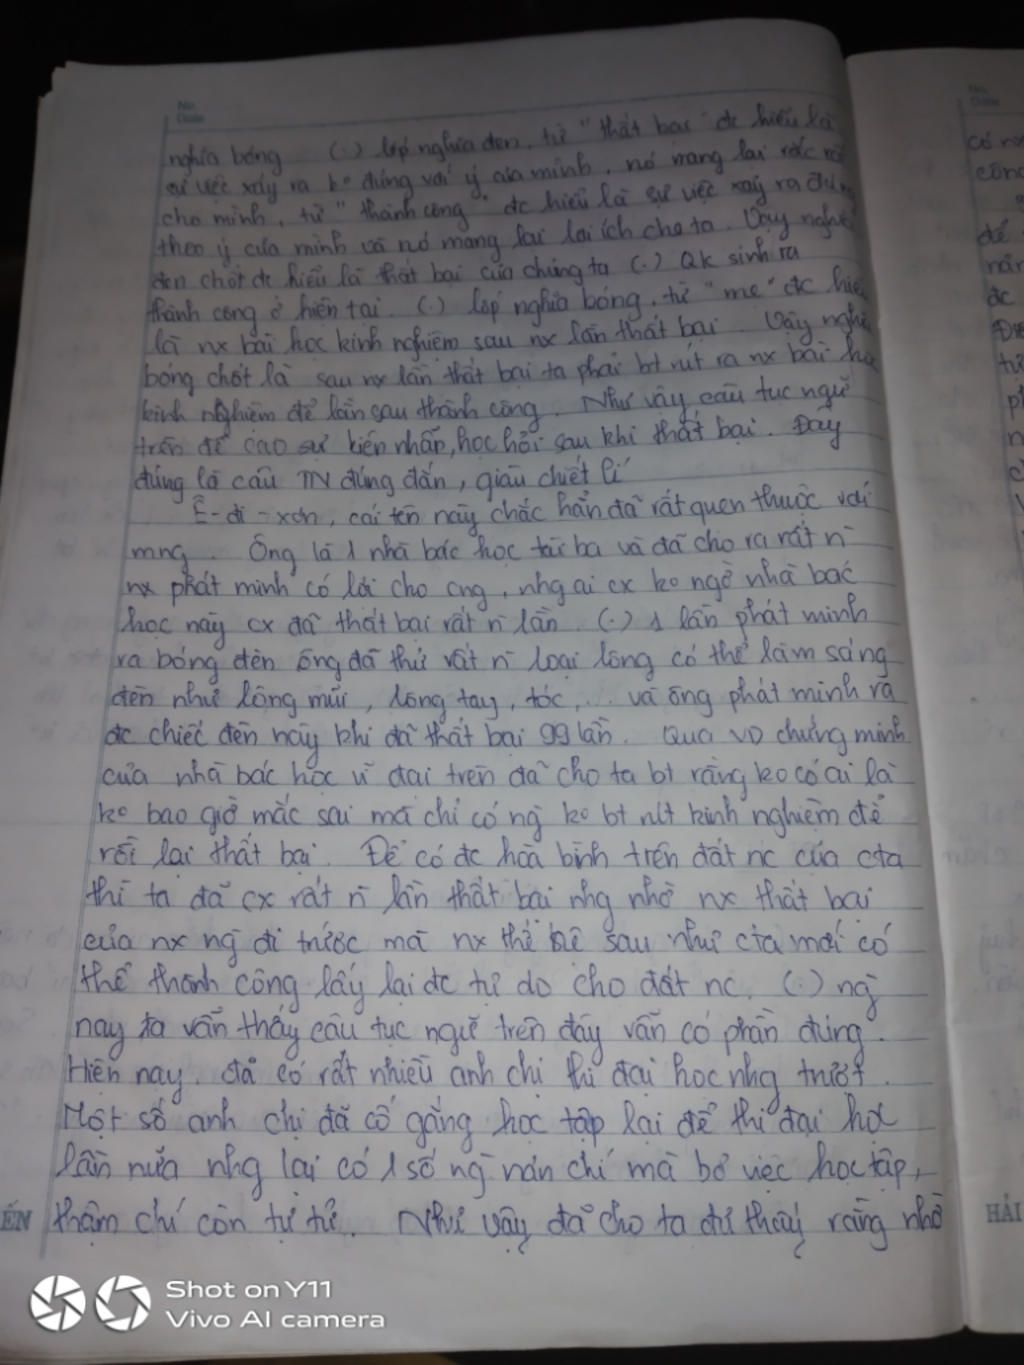 No.
Date
nghĩa bóng (.) lớp nghĩa đen, từ "thất bại" đc hiểu là
sự việc xảy ra ko đúng với ý của mình, nó mang lại rắc rối
cho mình, từ "thành công" đc hiểu là sự việc xảy ra đúng
theo ý của mình và nó mang lại lợi ích cho ta. Vậy nghĩa
đen chốt đc hiểu là thất bại của chúng ta (.) QK sinh ra
thành công ở hiện tại. (.) lớp nghĩa bóng, từ "mẹ" đc hiểu
là nx bài học kinh nghiệm sau nx lần thất bại. Vậy nghĩa
bóng chốt là sau nx lần thất bại ta phải bt rút ra nx bài học
kinh nghiệm để lần sau thành công. Như vậy câu tục ngữ
trên đề cao sự kiên nhấp, học hỏi sau khi thất bại. Đây
đúng là câu TN đúng đắn, giàu chiết lí
Ê-đi-xơn, cái tên này chắc hẳn đã rất quen thuộc với
mng. Ông là 1 nhà bác học tài ba và đã cho ra rất n`
nx phát minh có lời cho cng, nhg ai cx ko ngờ nhà bác
học này cx đã thất bại rất n` lần. (.) 1 lần phát minh
ra bóng đèn ông đã thử rất n` loại lông có thể làm sáng
đèn như lông mũi, lông tay, tóc,... và ông phát minh ra
đc chiếc đèn này khi đã thất bại 99 lần. Qua VD chứng minh
của nhà bác học vĩ đại trên đã cho ta bt rằng ko có ai là
ko bao giờ mắc sai mà chỉ có ng` ko bt rút kinh nghiệm để
rồi lại thất bại. Để có đc hoà bình trên đất nc của cta
thì ta đã cx rất n` lần thất bại nhg nhờ nx thất bại
của nx ng` đi trước mà nx thế hệ sau như cta mới có
thể thành công lấy lại đc tự do cho đất nc. (.) ng`
nay ta vẫn thấy câu tục ngữ trên đây vẫn có phần đúng.
Hiện nay, đã có rất nhiều anh chị thi đại học nhg trượt.
Một số anh chị đã cố gắng học tập lại để thi đại học
lần nữa nhg lại có 1 số ng` nản chí mà bỏ việc học tập,
thậm chí còn tự tử. Như vậy đã cho ta thấy rằng nhờ
ẾN
HẢI
Shot on Y11
Vivo AI camera